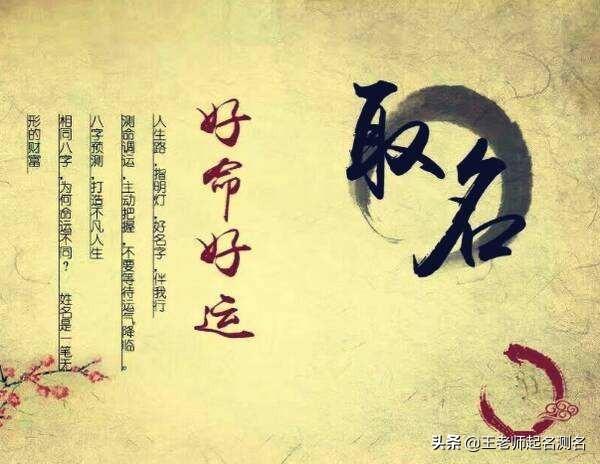 取名
好命好运
人生路,指明灯,好名字,伴我行
测命调运,主动把握,不要等待运气降临。
八字预测,打造不凡人生
相同八字,为何命运不同? 姓名是一笔无
形的财富
头条@王老师起名测名